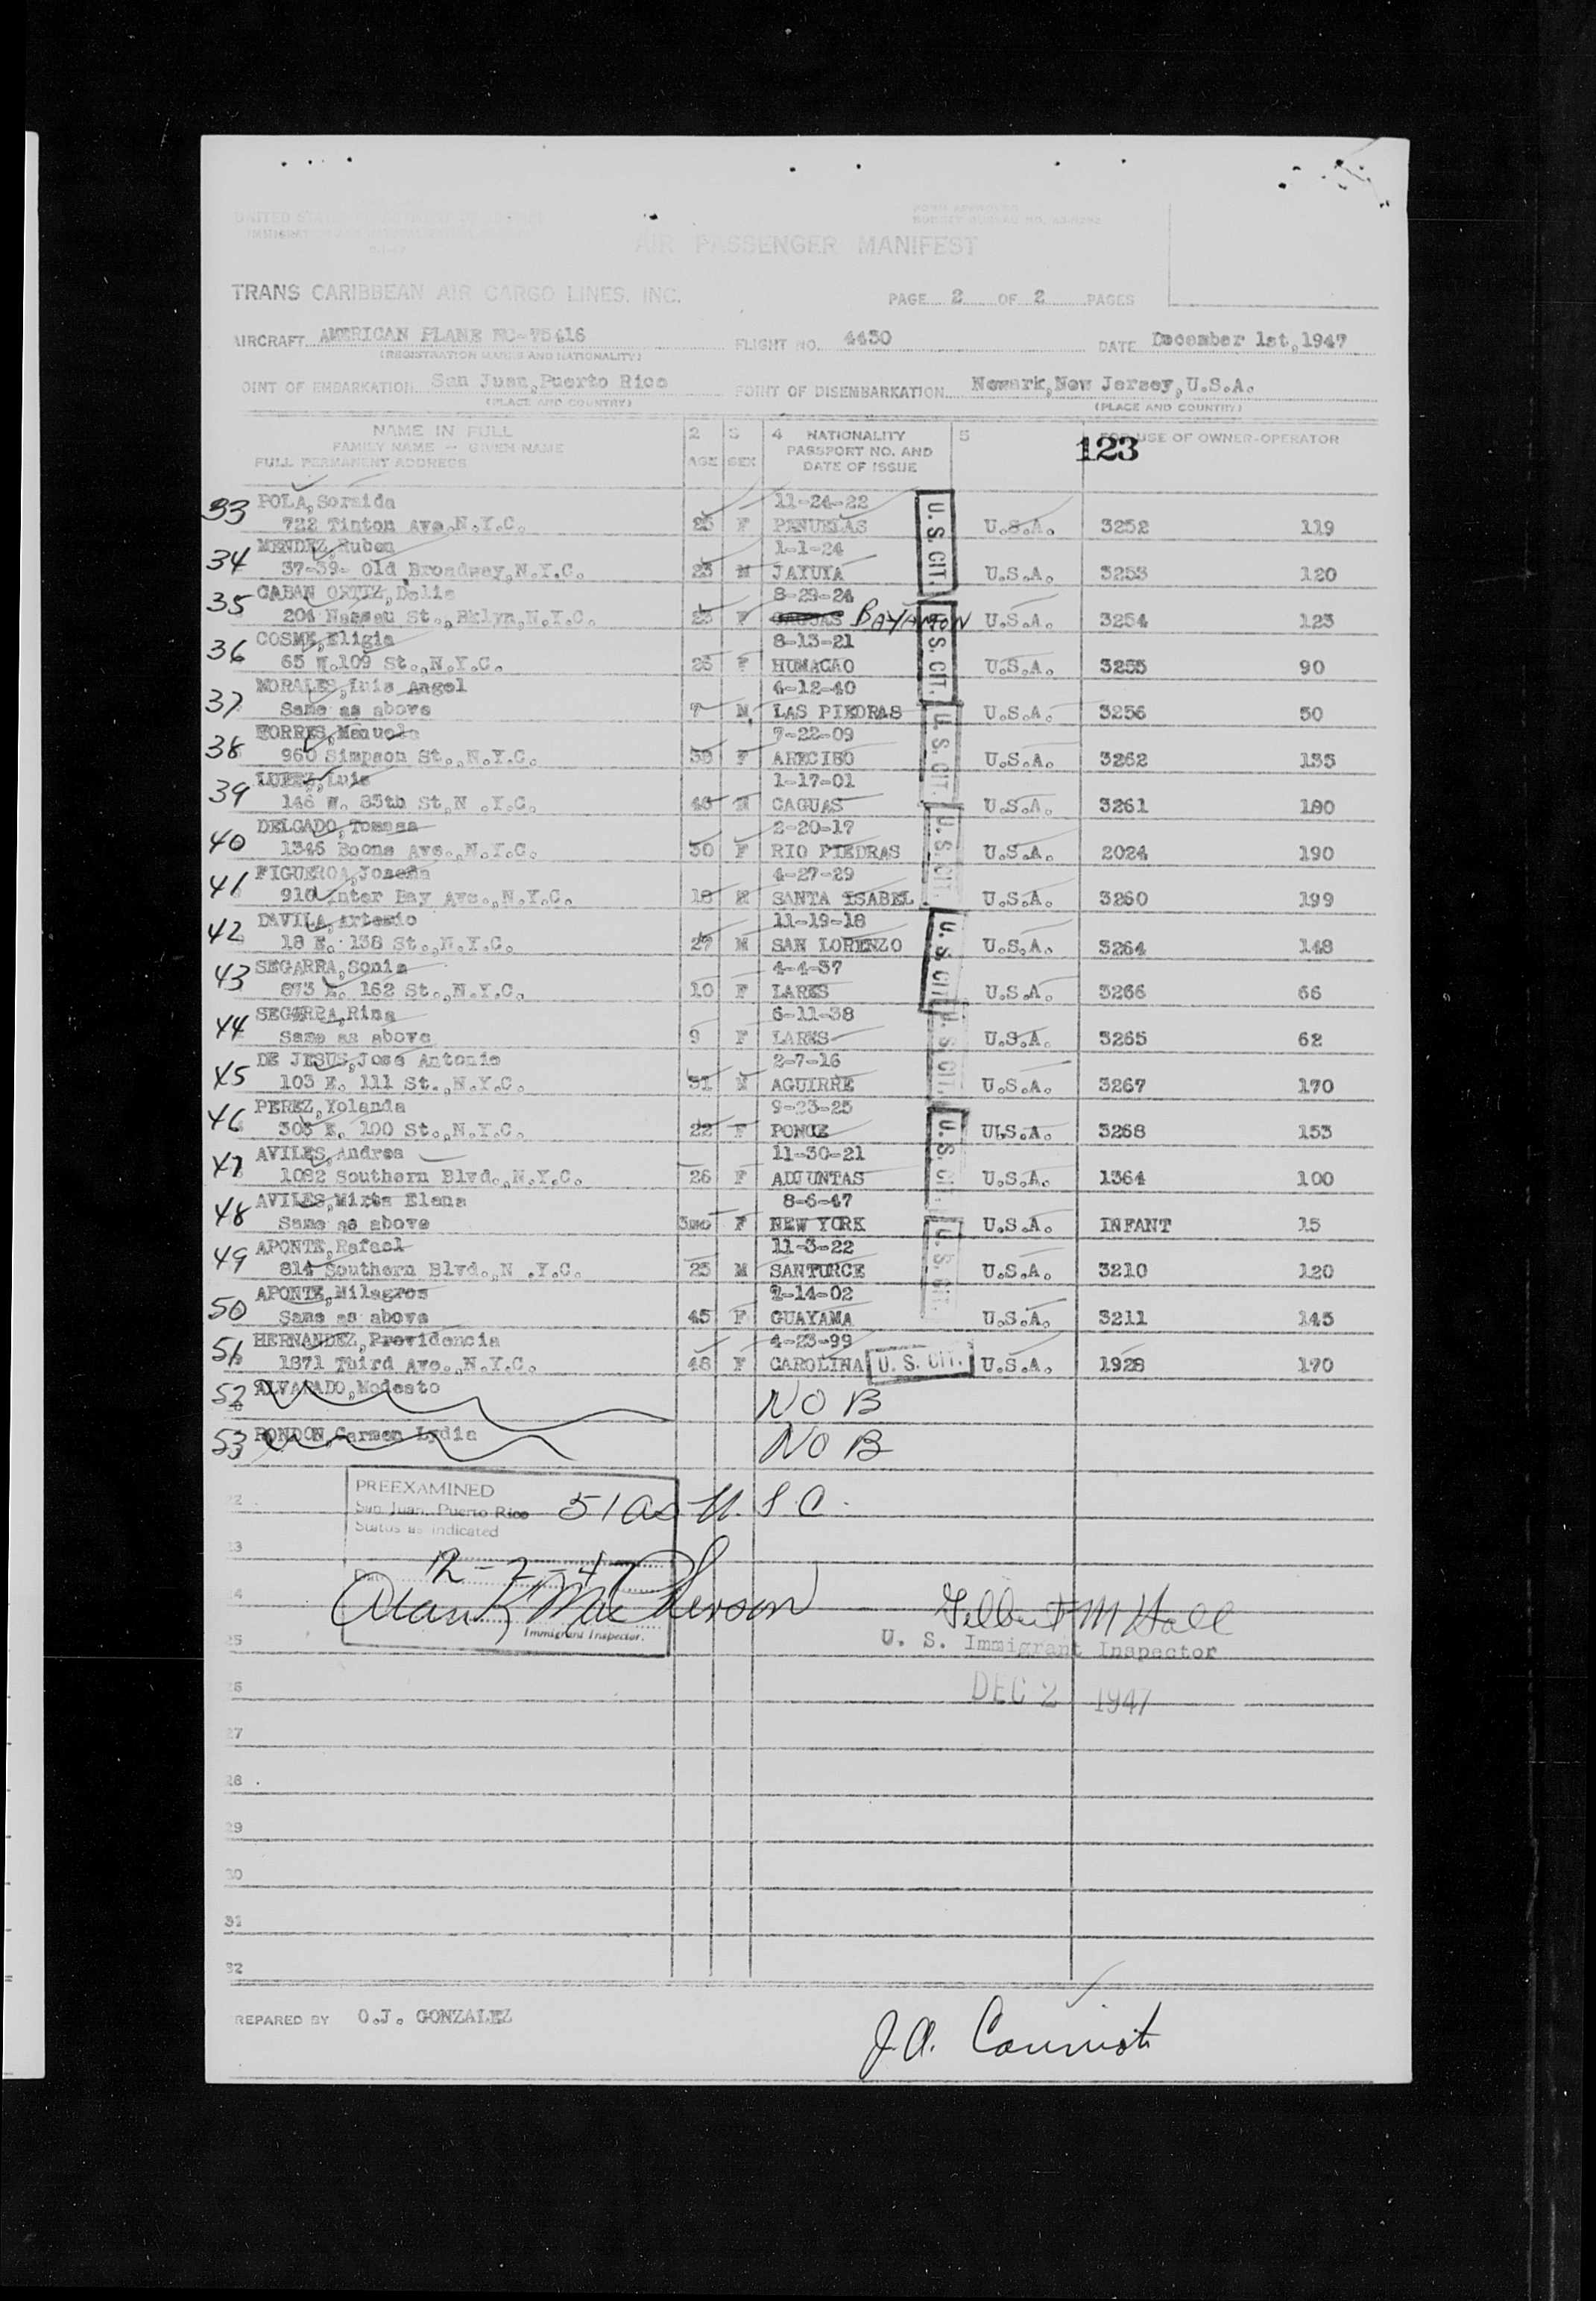 UNITED STATES DEPARTMENT OF JUSTICE
FORM APPROVED
BUDGET BUREAU NO.
AIR PASSENGER MANIFEST
TRANS CARIBBEAN AIR CARGO LINES, INC.
PAGE 2 OF 2 PAGES
AIRCRAFT AMERICAN PLANE NC-75416 FLIGHT NO. 4430 DATE December 1st,1947
(REGISTRATION MARKS AND NATIONALITY)
OINT OF EMBARKATION San Juan,Puerto Rico POINT OF DISEMBARKATION Newark,New Jersey,U.S.A.
(PLACE AND COUNTRY) (PLACE AND COUNTRY)
NAME IN FULL 2 3 4 NATIONALITY 5 FOR USE OF OWNER-OPERATOR
FAMILY NAME — GIVEN NAME PASSPORT NO. AND 123
FULL PERMANENT ADDRESS AGE SEX DATE OF ISSUE
33 POLA,Soraida 11-24-22
722 Tinton Ave.,N.Y.C. 25 F PENUELAS U.S.A. 3252 119
34 MENDEZ,Ruben 1-1-24
37-39- Old Broadway,N.Y.C. 23 M JAYUYA U.S. CIT. U.S.A. 3253 120
35 CABAN ORTIZ,Delia 8-29-24
204 Nassau St.,Bklyn,N.Y.C. 23 F CAGUAS BAYAMON U.S.A. 3254 123
36 COSME,Eligia 8-13-21
65 W.109 St.,N.Y.C. 26 F HUMACAO U.S. CIT. U.S.A. 3255 90
37 MORALES,Luis Angel 4-12-40
Same as above 7 M LAS PIEDRAS U.S.A. 3256 50
38 TORRES,Manuela 7-22-09
960 Simpson St.,N.Y.C. 38 F ARECIBO U.S. CIT. U.S.A. 3262 135
39 LOPEZ,Luis 1-17-01
146 W. 85th St,N .Y.C. 46 M CAGUAS U.S.A. 3261 180
40 DELGADO,Tomasa 2-20-17
1346 Boone Ave.,N.Y.C. 30 F RIO PIEDRAS U.S. CIT. U.S.A. 2024 190
41 FIGUEROA,Josefa 4-27-29
910 Inter Bay Ave.,N.Y.C. 18 SANTA ISABEL U.S.A. 3260 199
42 DAVILA,Artemio 11-19-18
18 E. 138 St.,N.Y.C. 27 M SAN LORENZO U.S. CIT U.S.A. 3264 148
43 SEGARRA,Sonia 4-4-37
873 E. 162 St.,N.Y.C. 10 F LARES U.S.A. 3266 66
44 SEGARRA,Rina 6-11-38
Same as above 9 F LARES U.S. CIT. U.S.A. 3265 62
45 DE JESUS,Jose Antonio 2-7-16
103 E. 111 St.,N.Y.C. 31 M AGUIRRE U.S.A. 3267 170
46 PEREZ,Yolanda 9-23-25
303 E. 100 St.,N.Y.C. 22 F PONCE U.S. CIT. U.S.A. 3268 153
47 AVILES,Andrea 11-30-21
1082 Southern Blvd.,N.Y.C. 26 F ADJUNTAS U.S.A. 1364 100
48 AVILES,Mirta Elena 8-6-47
Same as above 3mo F NEW YORK U.S. CIT. U.S.A. INFANT 15
49 APONTE,Rafael 11-3-22
814 Southern Blvd.,N .Y.C. 25 M SANTURCE U.S.A. 3210 120
50 APONTE,Milagros 2-14-02
Same as above 45 F GUAYAMA U.S.A. 3211 145
51 HERNANDEZ,Providencia 4-23-99
1871 Third Ave.,N.Y.C. 48 F CAROLINA U. S. CIT. U.S.A. 1928 170
52 ALVARADO,Modesto NO B
53 RONDON,Carmen Lydia NO B
PREEXAMINED
22 San Juan, Puerto Rico 51 as U.S.C.
Status as indicated
23
Date 12-2-47
24 Alan K MacPherson Gilbert M Hall
Immigrant Inspector.
25 U. S. Immigrant Inspector
26 DEC 2 1947
27
28
29
30
31
32
REPARED BY O.J. GONZALEZ
J.A.